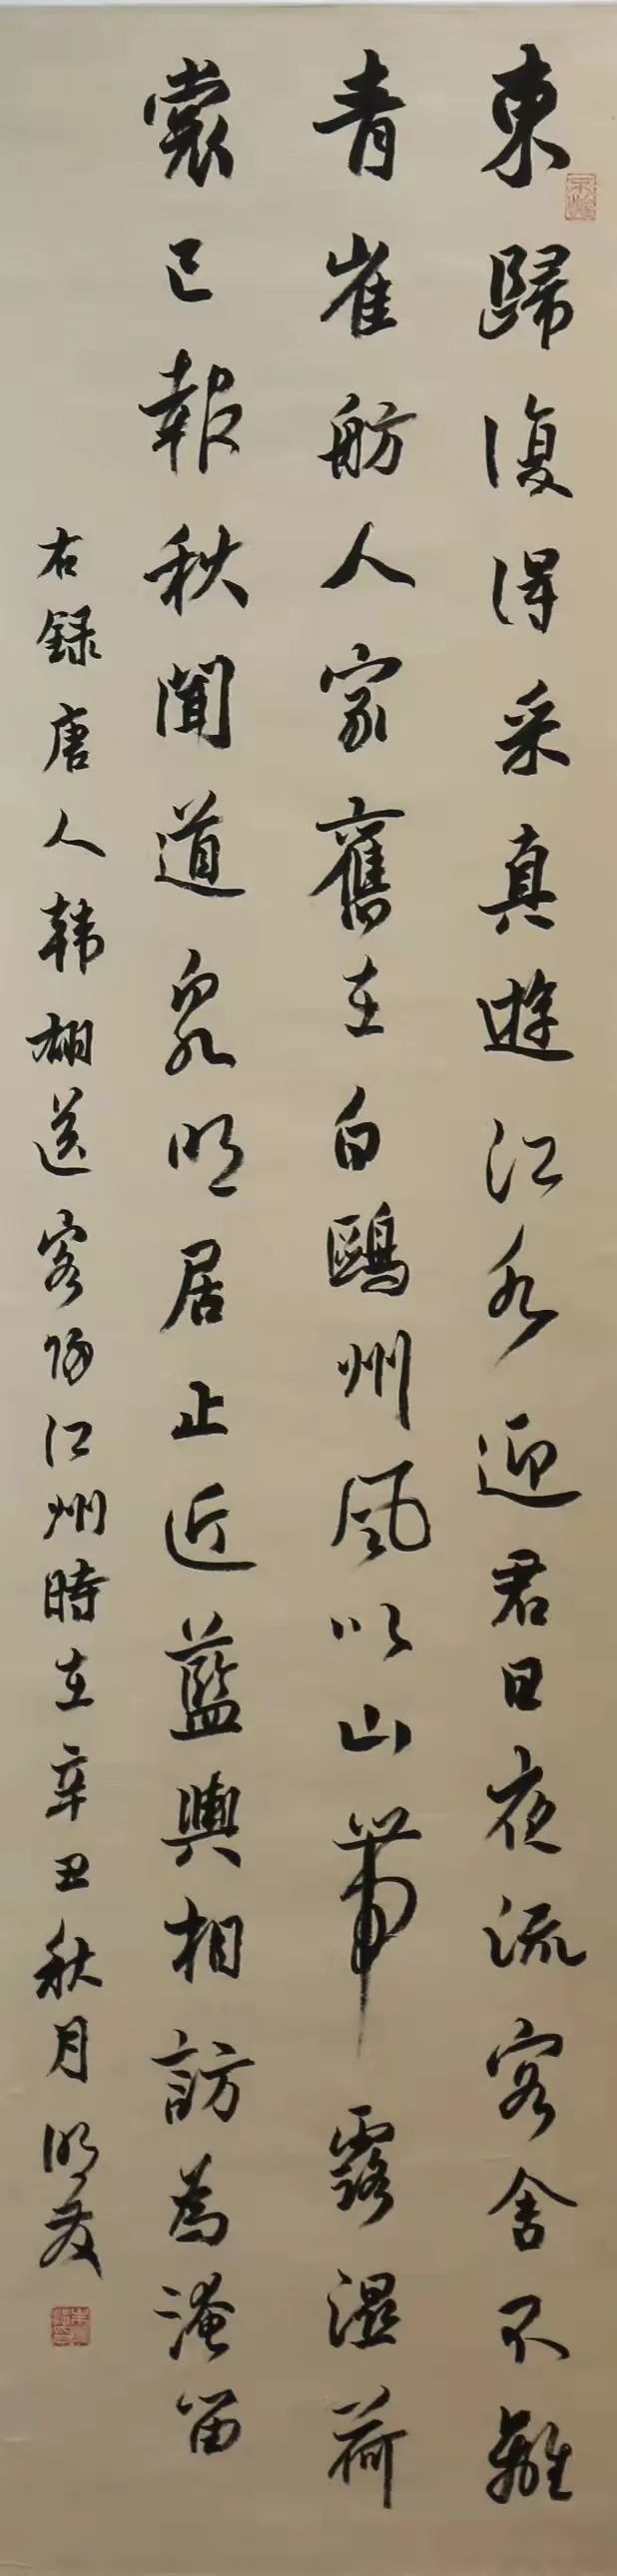 東歸復得采真遊江水迎君日夜流客舍不離
青雀舫人家舊在白鷗州風吹山帶露濕荷
裳已報秋聞道泉明居止近藍輿相訪為淹留
右録唐人韩翃送客歸江州時在辛丑秋月明友